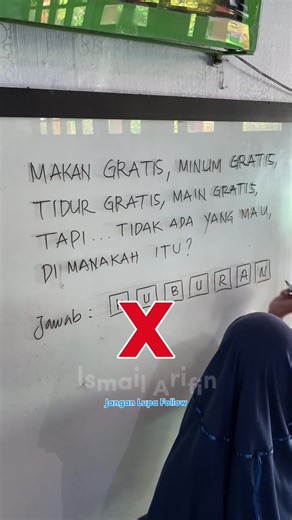 MAKAN GRATIS, MINUM GRATIS,
TIDUR GRATIS, MAIN GRATIS,
TAPI... TIDAK ADA YANG MAU,
DI MANAKAH ITU?
Jawab : KUBURAN
X
Ismail Arifin
Jangan Lupa Follow